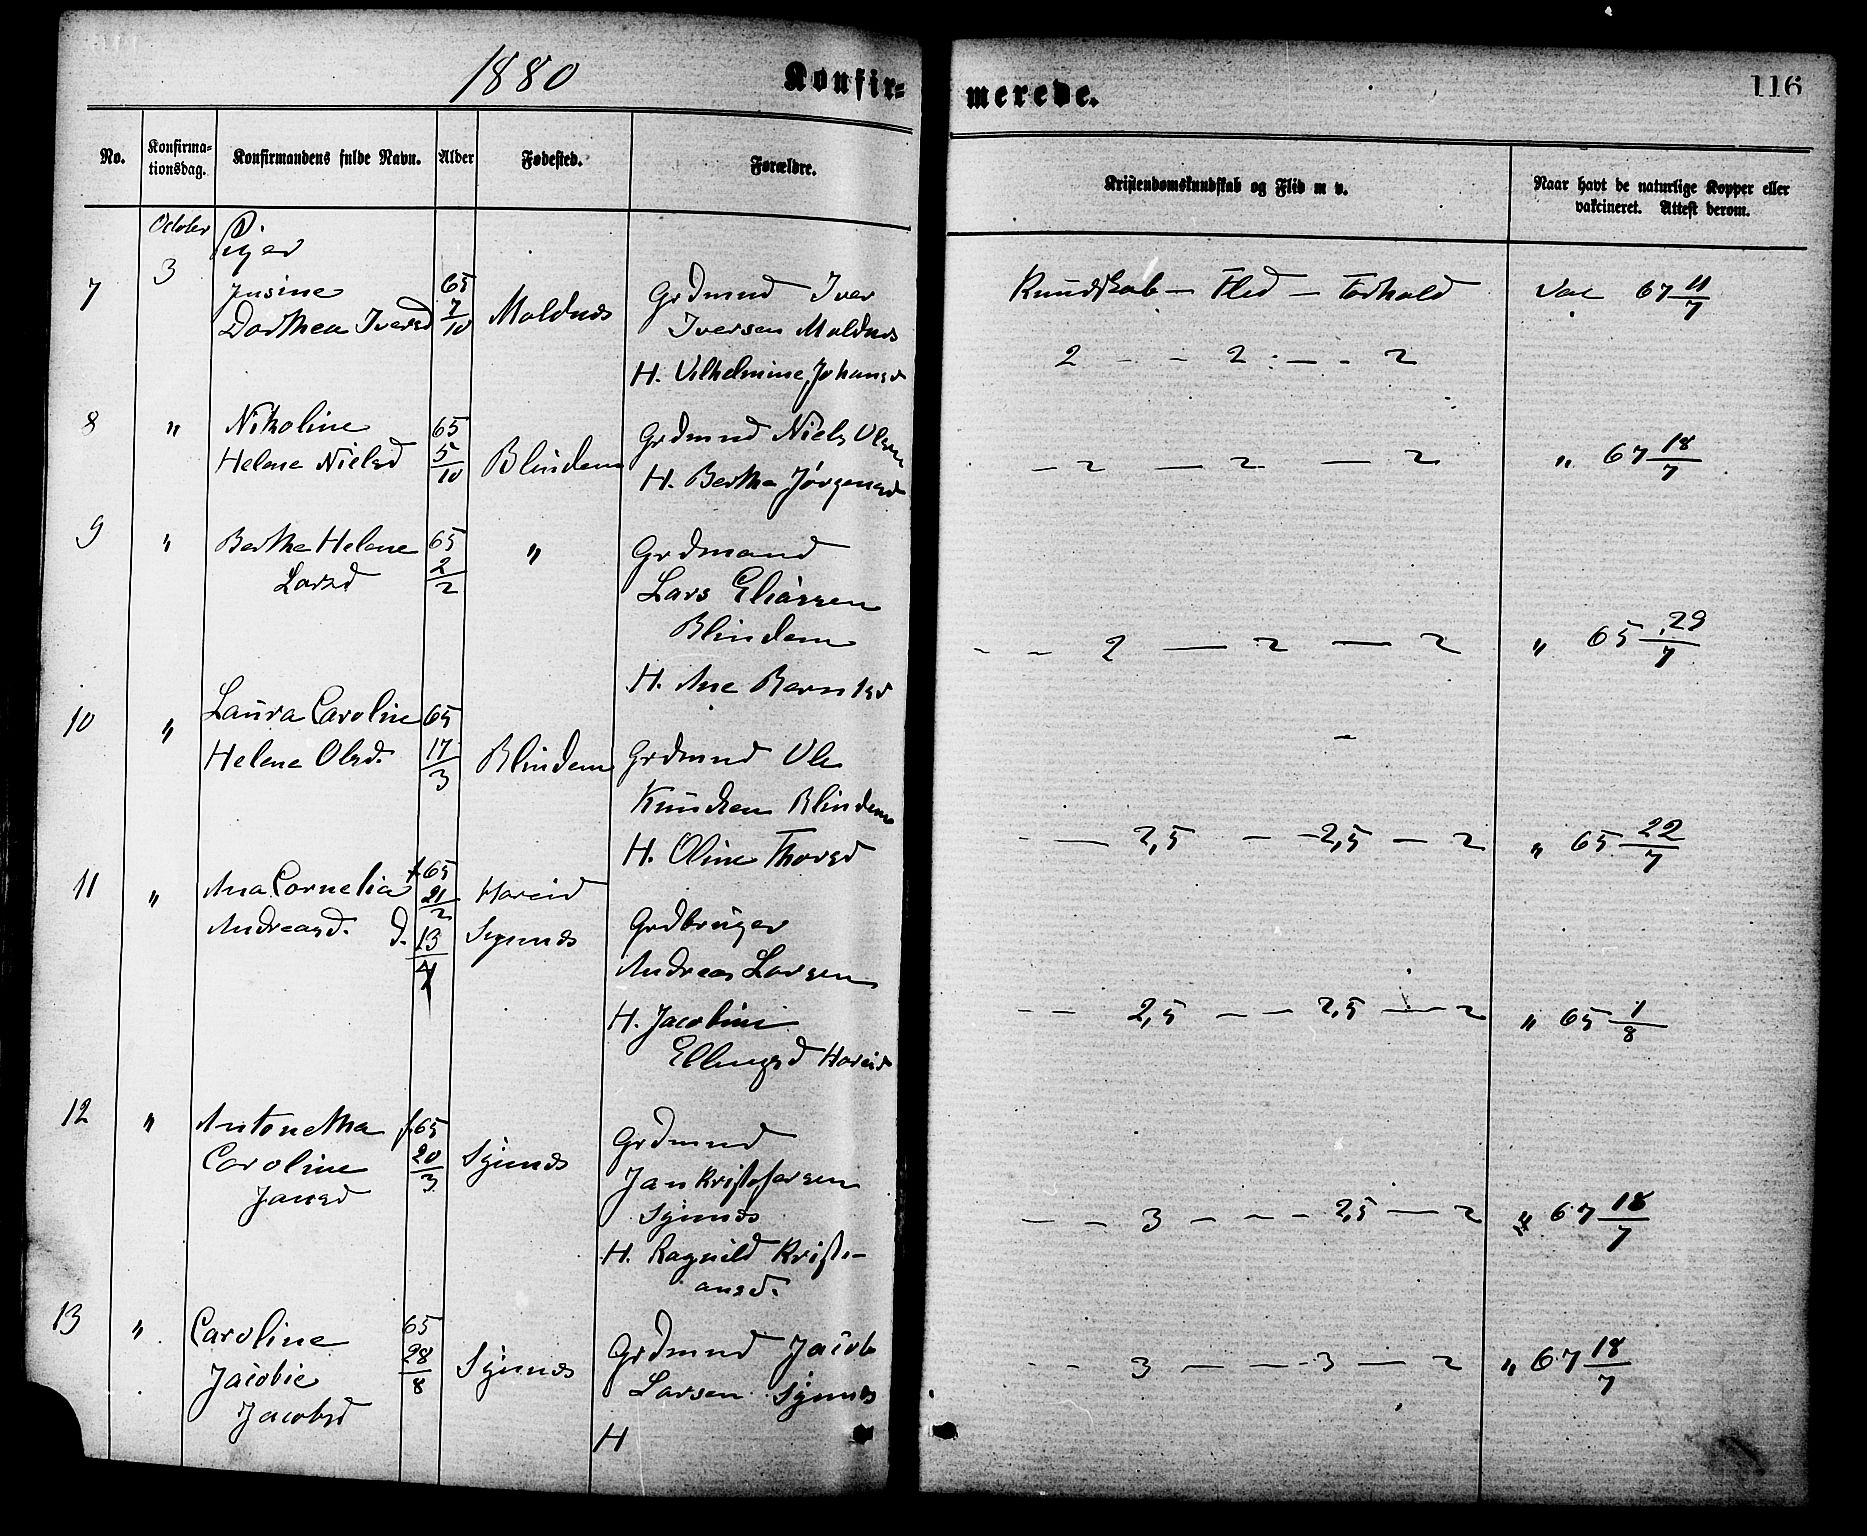 1880
Konfir-
merede.
116
No.
Konfirma-
tionsdag.
Konfirmandens fulde Navn.
Alder
Fødested.
Forældre.
Kristendomskundskab og Flid m v.
Naar havt de naturlige Kopper eller
vakcineret. Attest derom.
October
Piger
3
7
Jusine
Dorthea Iversd
65
7/10
Moldnes
Grdmnd Iver
Iversen Moldnes
H. Vilhelmine Johansd
Kundskab — Flid — Forhold
2 - - 2 - — - 2
Vac 67 11/7
8
"
Nikoline
Helene Nielsd
65
5/10
Blindem
Grdmnd Niels Olsen
H. Berthe Jørgensd
— 2 — 2 — 2
" 67 18/7
9
"
Berthe Helene
Larsd
65
2/2
"
Grdmand
Lars Eliassen
Blindem
H. Ane Berntsd
- - 2 — 2 — 2
" 65 29/7
10
"
Laura Caroline
Helene Olsd.
65
17/3
Blindem
Grdmnd Ole
Knudsen Blindem
H. Oline Thorsd
- — 2,5 — 2,5 — 2
" 65 22/7
11
"
Ana Cornelia
Andreasd.
f. 65
21/2
d. 13/4
Hareid
Synnes
Grdbruger
Andreas Larsen
H. Jacobine
Ellingsd Hareid
- - 2,5 - - 2,5 — 2
" 65 1/8
12
"
Antonetha
Caroline
Jansd
f. 65
20/3
Synnes
Grdmnd
Jan Kristofersen
Synnes
H. Ragnild Kristi-
ansd.
— - 3 - - - 2,5 — 2
" 67 18/7
13
"
Caroline
Jacobie
Jacobsd
65
28/8
Synnes
Grdmnd Jacob
Larsen Synnes
H
- - 3 — — 3 — 2
" 67 18/7